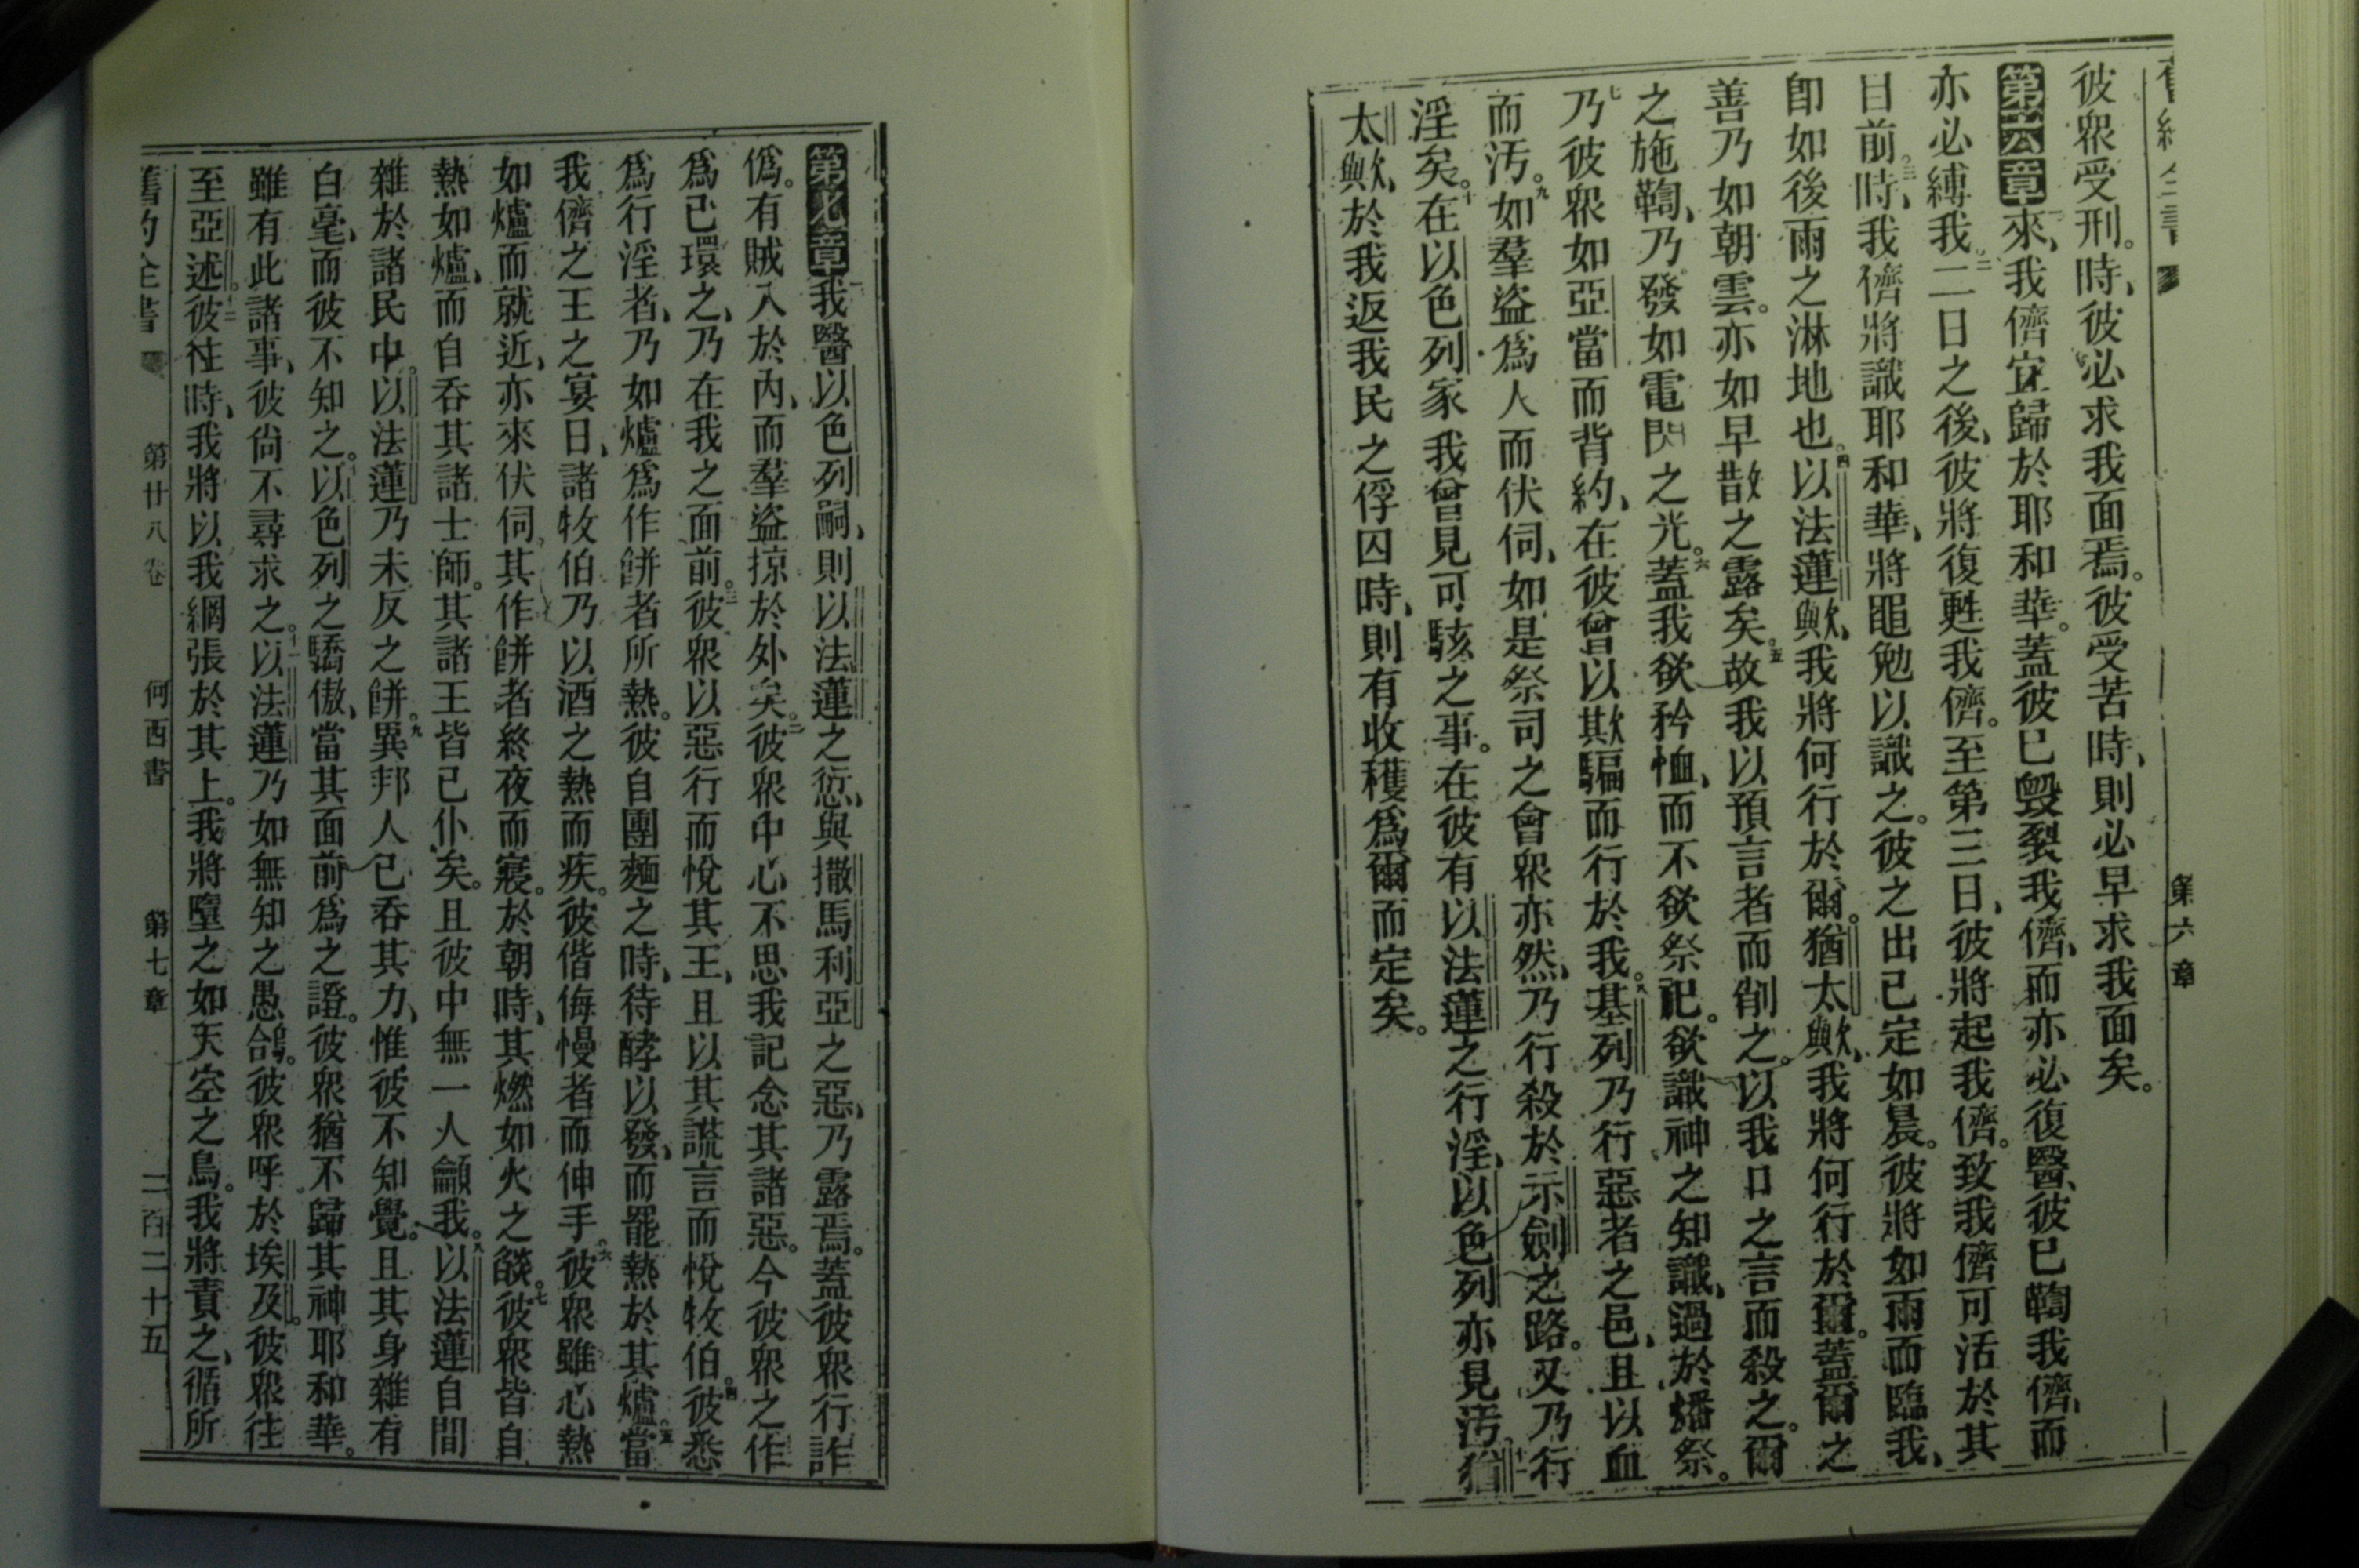 第六章
彼眾受刑。時、彼必求我面焉。彼受苦時、則必早求我面矣。
第六章來、我儕宜歸於耶和華。蓋彼已毀裂我儕、而亦必復醫、彼已鞫我儕、而
亦必縛我二日之後、彼將復甦我儕。至第三日、彼將起我儕。致我儕可活於其
目前。三時、我儕將識耶和華、將黽勉以識之。彼之出已定如晨。彼將如雨而臨我、
即如後雨之淋地也。四以法蓮歟、我將何行於爾。猶太歟、我將何行於爾。蓋爾之
善乃如朝雲。亦如早散之露矣。五故我以預言者而削之。以我口之言而殺之。爾
之施鞫、乃發如電閃之光。六蓋我欲矜恤、而不欲祭祀。欲識神之知識、過於燔祭。
七乃彼眾如亞當而背約、在彼曾以欺騙而行於我。八基列乃行惡者之邑、且以血
而污。九如羣盜為人而伏伺、如是祭司之會眾亦然、乃行殺於示劍之路。又乃行
淫矣。十在以色列家我曾見可駭之事。在彼有以法蓮之行淫、以色列亦見污。十一猶
太歟、於我返我民之俘囚時、則有收穫為爾而定矣。
第七章我醫以色列嗣、則以法蓮之愆、與撒馬利亞之惡、乃露焉。蓋彼眾行詐
偽。有賊入於內、而羣盜掠於外矣。二彼眾中心不思我記念其諸惡。今彼眾之作
為已環之、乃在我之面前。三彼眾以惡行而悅其王、且以其謊言而悅牧伯。四彼悉
為行淫者、乃如爐為作餅者所熱。彼自團麵之時、待酵以發、而罷熱於其爐。五當
我儕之王之宴日、諸牧伯乃以酒之熱而疾。彼偕侮慢者而伸手。六彼眾雖心熱
如爐而就近、亦來伏伺。其作餅者終夜而寢。於朝時、其燃如火之燄。七彼眾皆自
熱如爐、而自吞其諸士師。其諸王皆已仆矣。且彼中無一人籲我。八以法蓮自間
雜於諸民中。以法蓮乃未反之餅。九異邦人已吞其力、惟彼不知覺。且其身雜有
白毫、而彼不知之。十以色列之驕傲、當其面前為之證。彼眾猶不歸其神耶和華。
雖有此諸事、彼尚不尋求之。十一以法蓮乃如無知之愚鴿。彼眾呼於埃及。彼眾往
至亞述。十二彼往時、我將以我網張於其上。我將墮之如天空之鳥。我將責之、循所
舊約全書 第廿八卷 何西書 第七章 二百二十五